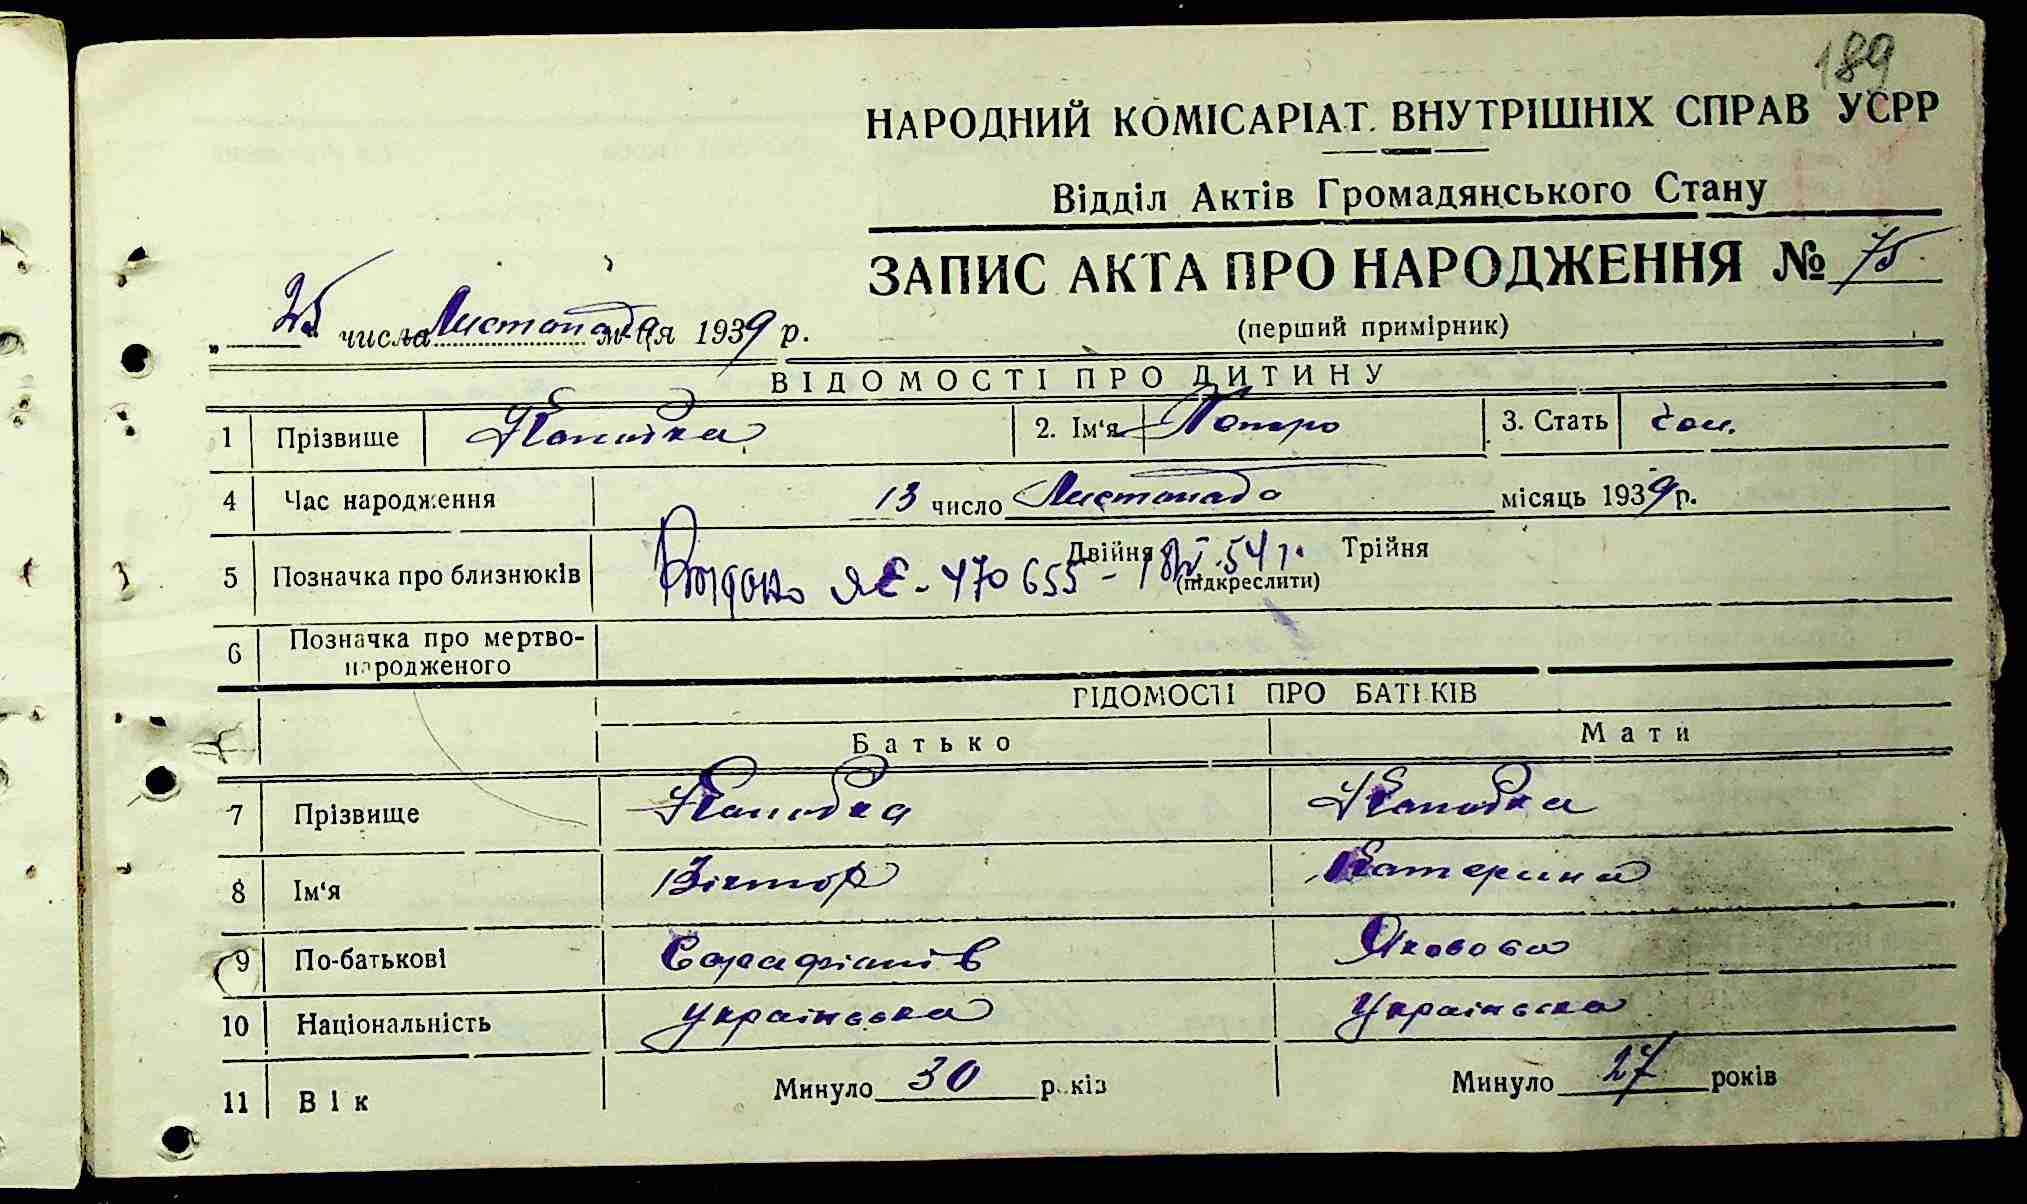 189
НАРОДНИЙ КОМІСАРІАТ ВНУТРІШНІХ СПРАВ УСРР
Відділ Актів Громадянського Стану
ЗАПИС АКТА ПРО НАРОДЖЕННЯ № 75
(перший примірник)
„25“ числа Листопада м-ця 1939 р.
ВІДОМОСТІ ПРО ДИТИНУ
1 Прізвище 2. Ім'я Петро 3. Стать чол.
4 Час народження 13 число Листопада місяць 1939 р.
5 Позначка про близнюків Двійня Трійня
(підкреслити)
ЯЄ - 470655 - 54 г.
6 Позначка про мертво-
народженого
ВІДОМОСТІ ПРО БАТЬКІВ
Батько Мати
7 Прізвище
8 Ім'я Віктор Катерина
9 По-батькові Яковова
10 Національність українська Українська
11 Вік Минуло 30 років Минуло 27 років